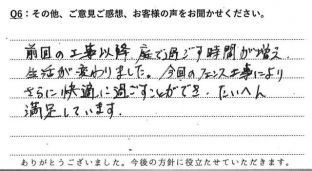 Q6：その他、ご意見ご感想、お客様の声をお聞かせください。
前回の工事以降 庭で過ごす時間が増え、
生活が変わりました。今回のフェンス工事により
さらに快適に過ごすことができ、たいへん
満足しています。
ありがとうございました。今後の方針に役立たせていただきます。